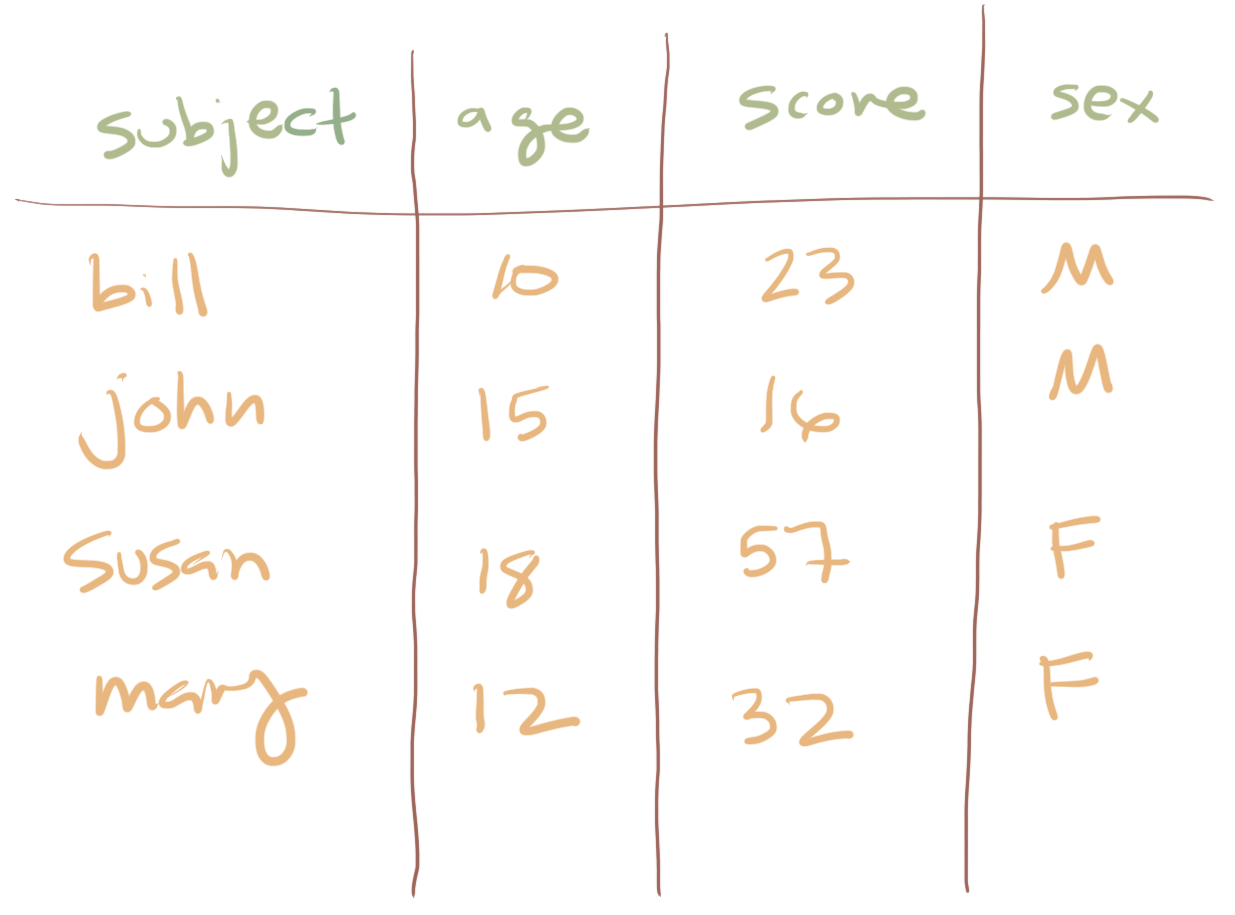 subject age score sex
bill 10 23 M
john 15 16 M
Susan 18 57 F
mary 12 32 F